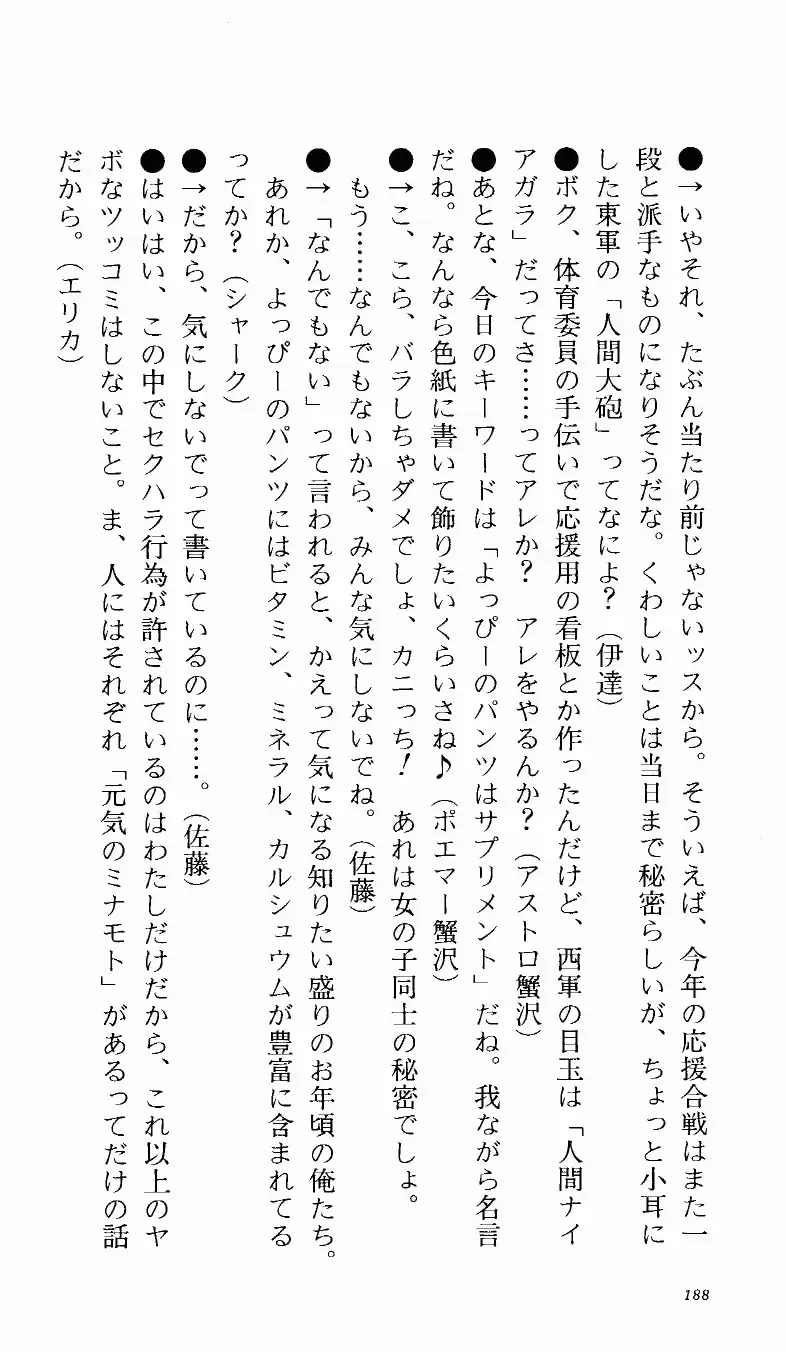 ●→いやそれ、たぶん当たり前じゃないッスから。そういえば、今年の応援合戦はまた一
段と派手なものになりそうだな。くわしいことは当日まで秘密らしいが、ちょっと小耳に
した東軍の「人間大砲」ってなによ？（伊達）
●ボク、体育委員の手伝いで応援用の看板とか作ったんだけど、西軍の目玉は「人間ナイ
アガラ」だってさ……ってアレか？　アレをやるんか？（アストロ蟹沢）
●あとな、今日のキーワードは「よっぴーのパンツはサプリメント」だね。我ながら名言
だね。なんなら色紙に書いて飾りたいくらいさね♪（ポエマー蟹沢）
●→こ、こら、バラしちゃダメでしょ、カニっち！　あれは女の子同士の秘密でしょ。
もう……なんでもないから、みんな気にしないでね。（佐藤）
●→「なんでもない」って言われると、かえって気になる知りたい盛りのお年頃の俺たち。
あれか、よっぴーのパンツにはビタミン、ミネラル、カルシュウムが豊富に含まれてる
ってか？（シャーク）
●→だから、気にしないでって書いているのに……。（佐藤）
●はいはい、この中でセクハラ行為が許されているのはわたしだけだから、これ以上のヤ
ボなツッコミはしないこと。ま、人にはそれぞれ「元気のミナモト」があるってだけの話
だから。（エリカ）
188